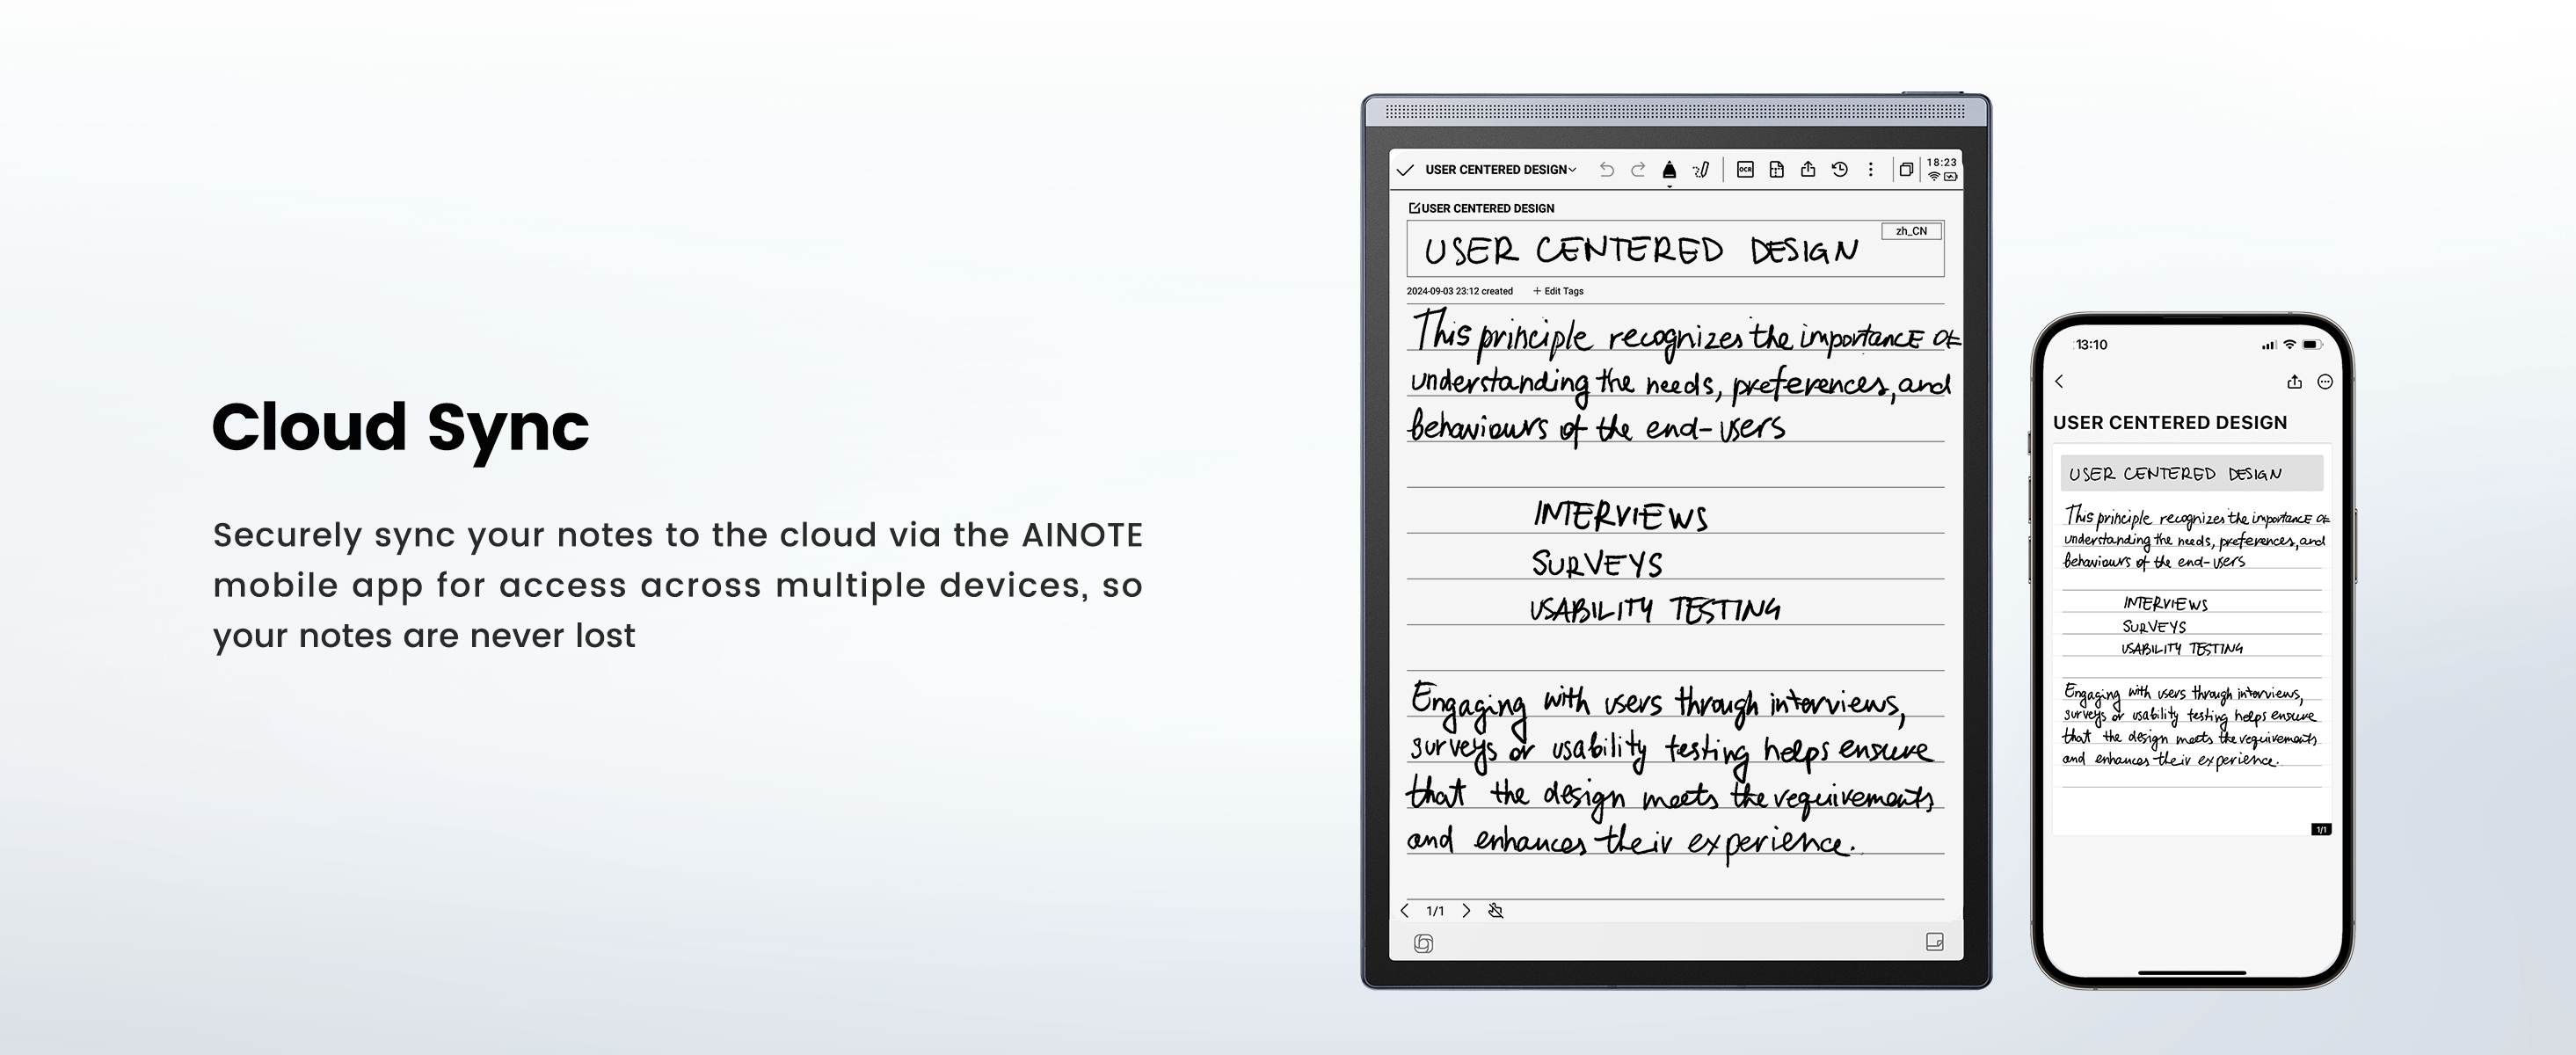 Cloud Sync
Securely sync your notes to the cloud via the AINOTE
mobile app for access across multiple devices, so
your notes are never lost
USER CENTERED DESIGN
OCR
18:23
USER CENTERED DESIGN
zh_CN
USER CENTERED DESIGN
2024-09-03 23:12 created + Edit Tags
This principle recognizes the importance of
understanding the needs, preferences, and
behaviours of the end-users
INTERVIEWS
SURVEYS
USABILITY TESTING
Engaging with users through interviews,
surveys or usability testing helps ensure
that the design meets the requirements
and enhances their experience.
1/1
13:10
USER CENTERED DESIGN
USER CENTERED DESIGN
This principle recognizes the importance of
understanding the needs, preferences, and
behaviours of the end-users
INTERVIEWS
SURVEYS
USABILITY TESTING
Engaging with users through interviews,
surveys or usability testing helps ensure
that the design meets the requirements
and enhances their experience.
1/1